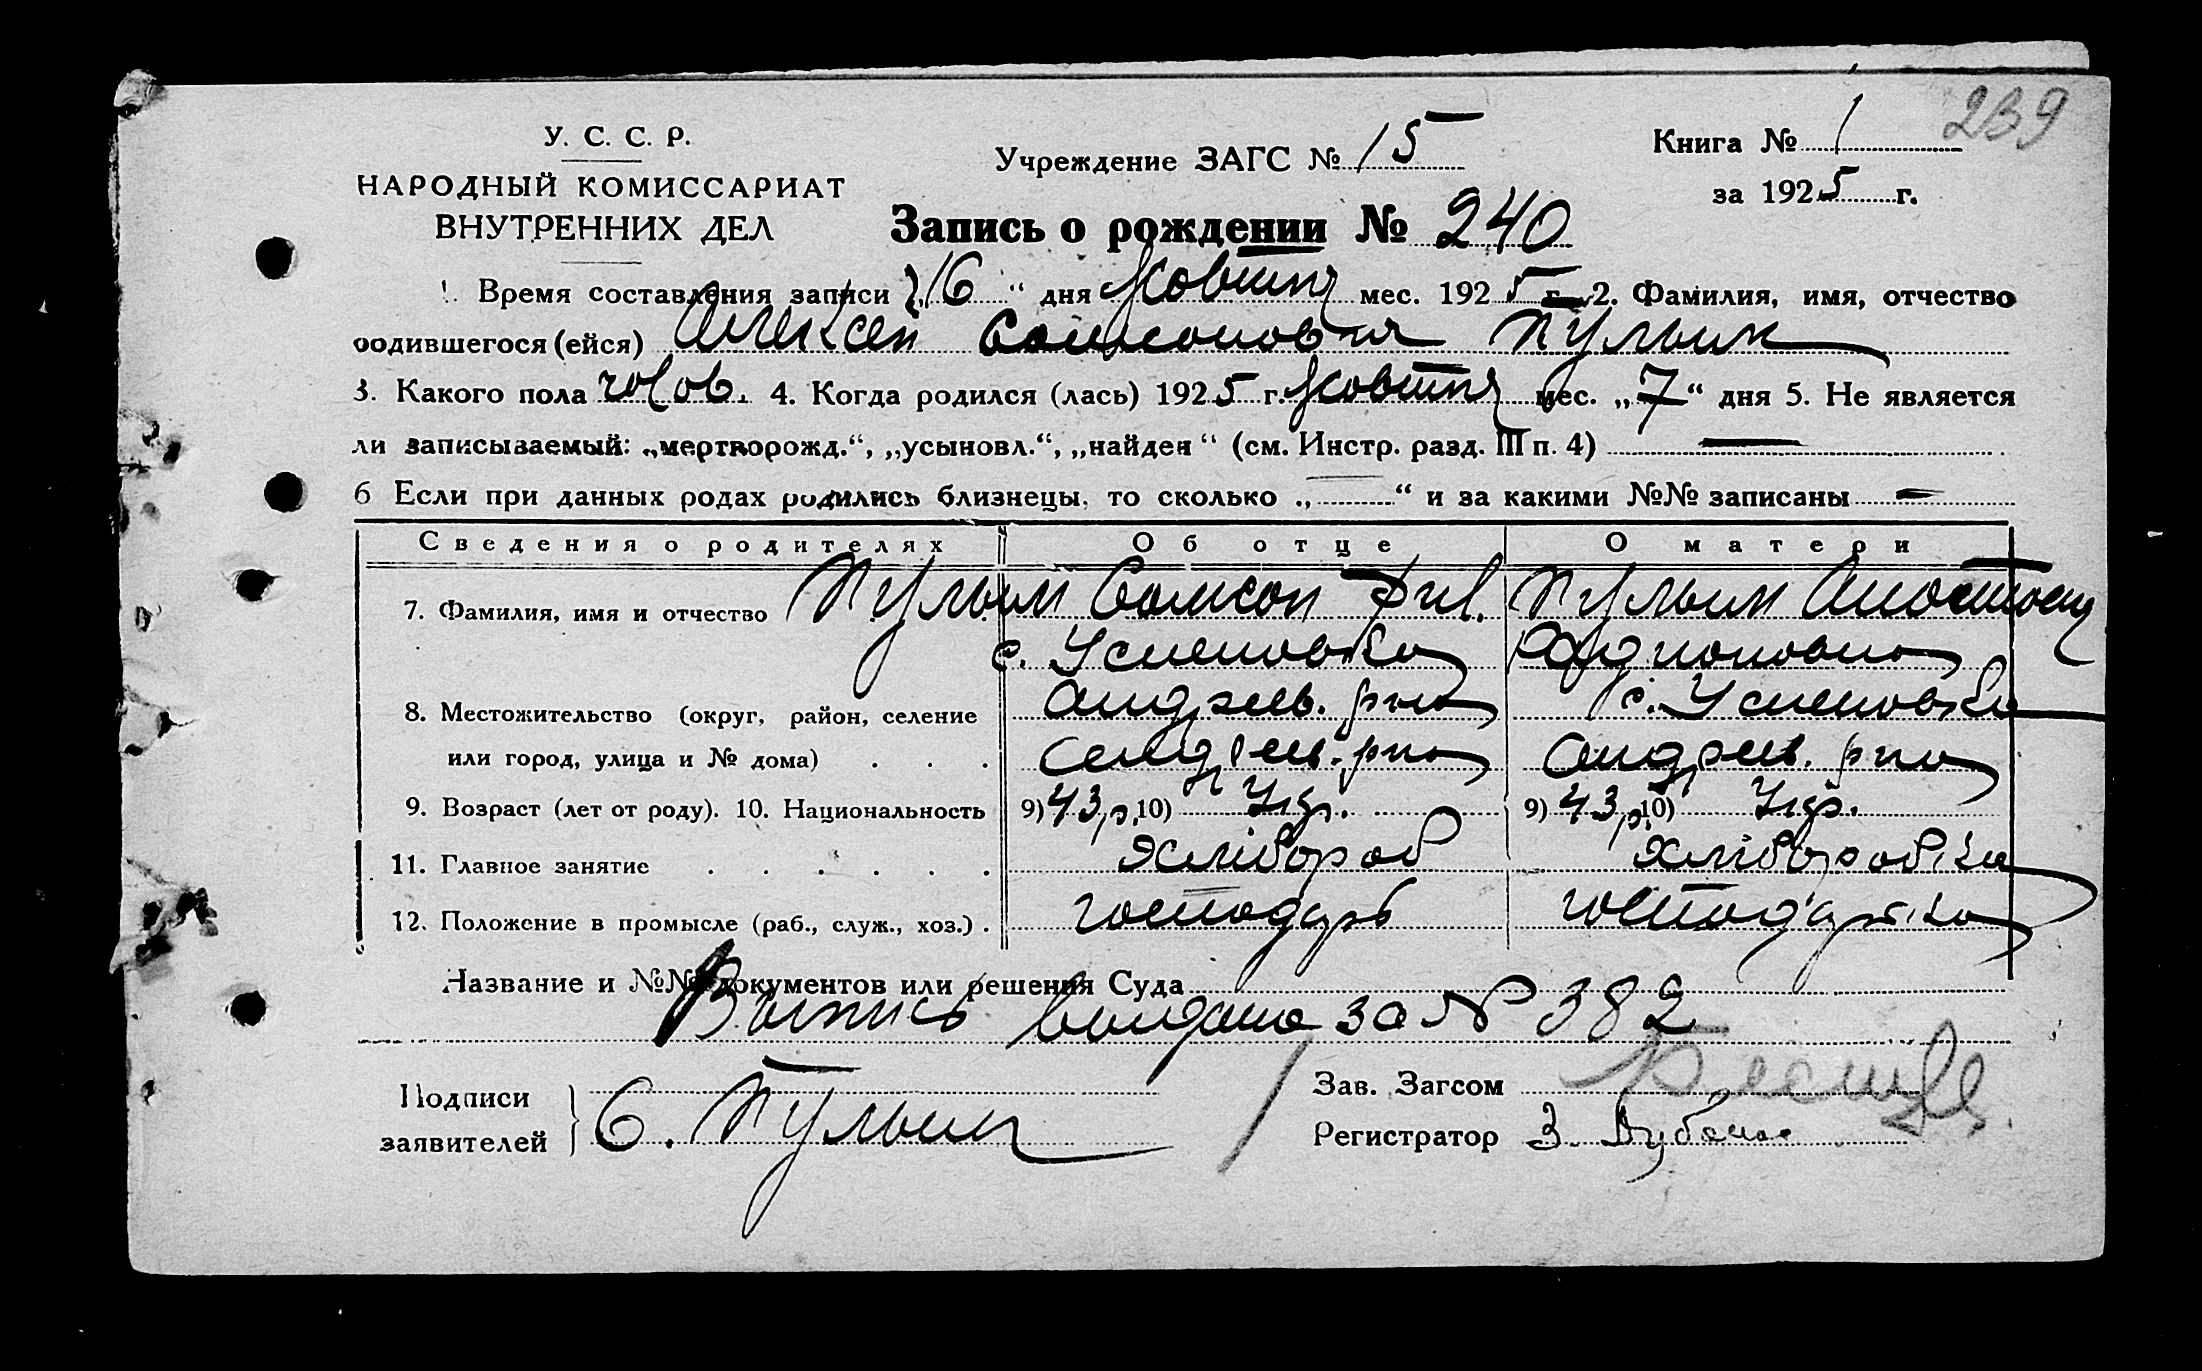 239
У. С. С. Р.
НАРОДНЫЙ КОМИССАРИАТ
ВНУТРЕННИХ ДЕЛ
Учреждение ЗАГС № 15
Книга № 1
за 1925 г.
Запись о рождении № 240
1. Время составления записи „16“ дня Жовтня мес. 1925 г. 2. Фамилия, имя, отчество
родившегося (ейся) Алексей Самсонович
3. Какого пола чолов. 4. Когда родился (лась) 1925 г. Жовтня мес. „7“ дня 5. Не является
ли записываемый: „мертворожд.“, „усыновл.“, „найден“ (см. Инстр. разд. III п. 4) —
6 Если при данных родах родились близнецы, то сколько „—“ и за какими №№ записаны —
Сведения о родителях Об отце О матери
7. Фамилия, имя и отчество Самсон Фил.
с. Успеновка Родионовна
8. Местожительство (округ, район, селение Андреев. рна с. Успеновка
или город, улица и № дома) . . . Андреев. рна Андреев. рна
9. Возраст (лет от роду). 10. Национальность 9) 43 р. 10) Укр. 9) 43 р. 10) Укр.
11. Главное занятие . . . . . . Хлібороб Хлібороб.ка
12. Положение в промысле (раб., служ., хоз.) . господарь господарка
Название и №№ документов или решения Суда
Выпись выдана за № 382
Подписи
заявителей
С.
Зав. Загсом
Регистратор З.